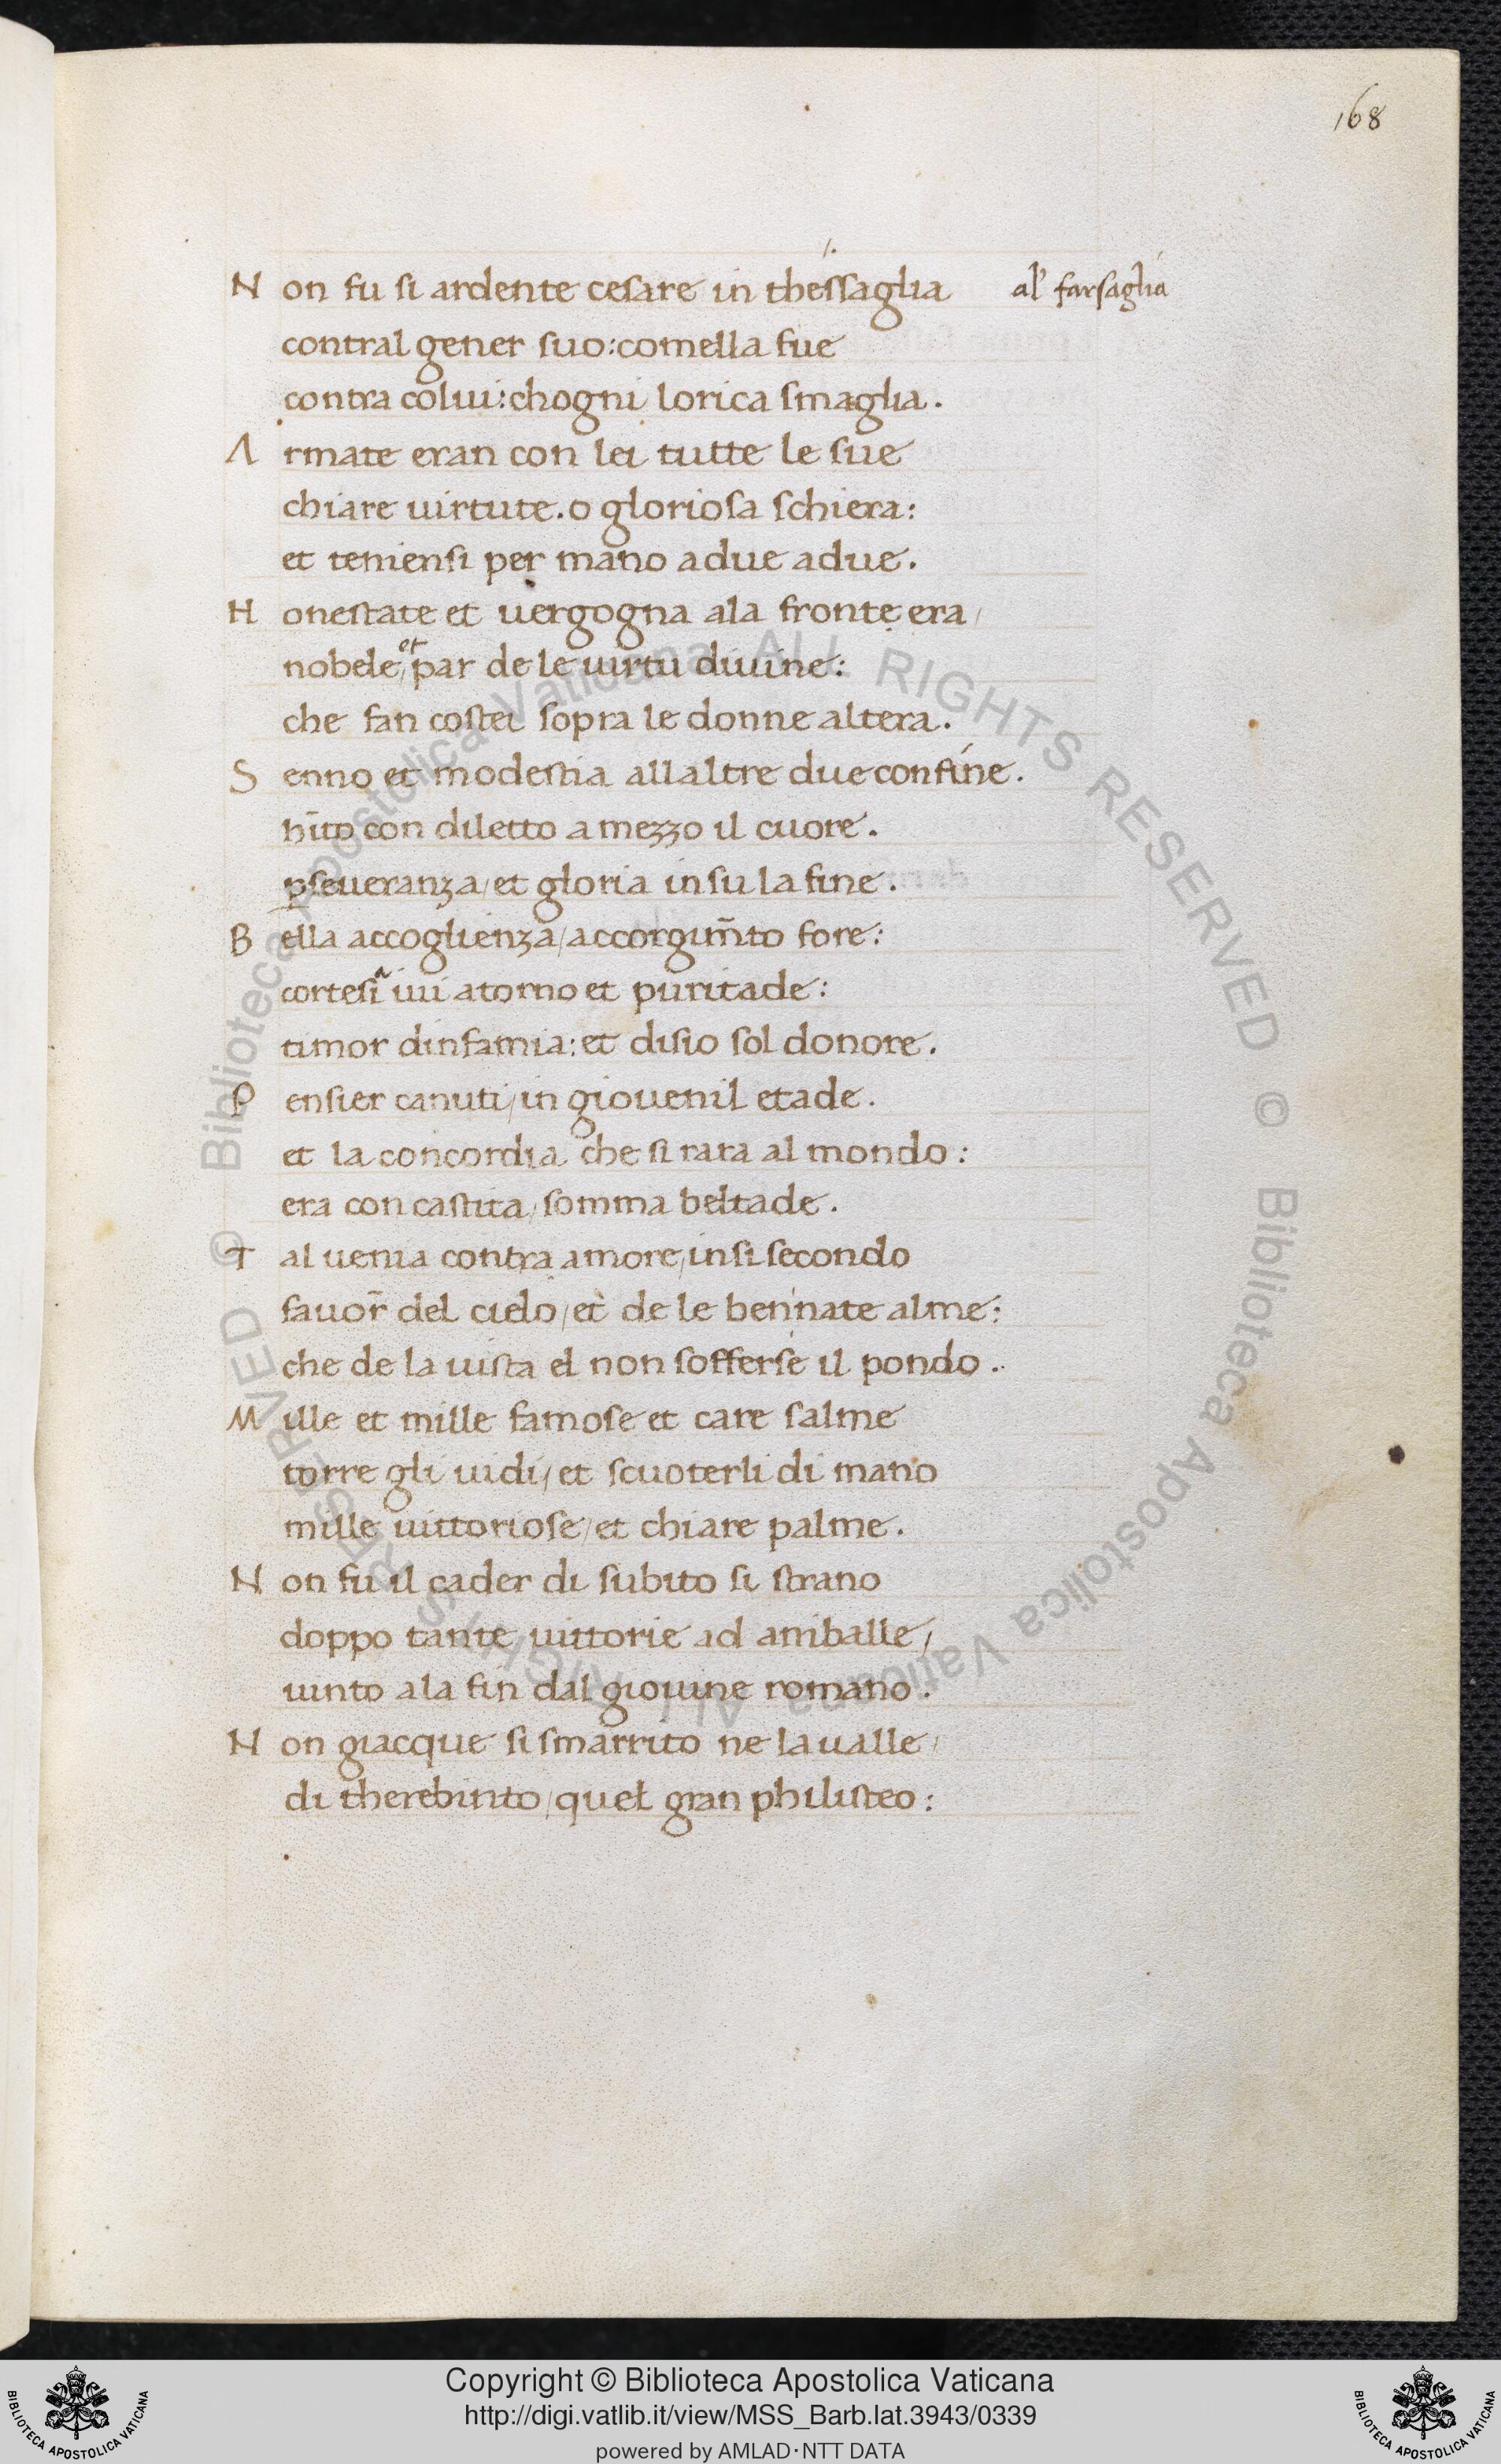 168
Non fu si ardente cesare in thessaglia al' farsaglia
contral gener suo: comella fue
contra colui: chogni lorica smaglia.
Armate eran con lei tutte le sue
chiare uirtute. o gloriosa schiera:
et teniensi per mano adue adue.
Honestate et uergogna ala fronte era/
nobele/ et par de le uirtu diuine:
che fan costei sopra le donne altera.
Senno et modestia allaltre due confine.
hito con diletto a mezzo il cuore.
pseueranza/ et gloria insu la fine.
Bella accoglienza/ accorgim̃to fore:
cortesia iui atorno et puritade:
timor dinfamia: et disio sol donore.
Pensier canuti/ in giouenil etade.
et la concordia che si rara al mondo:
era con castita/ somma beltade.
Tal uenia contra amore/ insi secondo
fauor̃ del cielo/ et de le bennate alme:
che de la uista el non sofferse il pondo.
Mille et mille famose et care salme
torre gli uidi/ et scuoterli di mano
mille uittoriose/ et chiare palme.
Non fu il cader di subito si strano
doppo tante uittorie ad aniballe/
uinto ala fin dal giouine romano.
Non giacque si smarrito ne la ualle/
di therebinto/ quel gran philisteo:
© Biblioteca Apostolica Vaticana ALL RIGHTS RESERVED © Biblioteca Apostolica Vaticana ALL RIGHTS RESERVED
Copyright © Biblioteca Apostolica Vaticana
http://digi.vatlib.it/view/MSS_Barb.lat.3943/0339
powered by AMLAD·NTT DATA
BIBLIOTECA APOSTOLICA VATICANA
BIBLIOTECA APOSTOLICA VATICANA